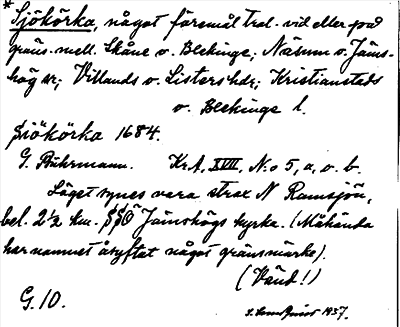 * Sjökörka, något föremål trol. vid eller på
gräns. mell. Skåne o. Blekinge; Näsum o. Jäms-
hög sr; Villands o. Listers hdr; Kristianstads
o. Blekinge l.
Siökörka 1684.
G. Buhrmann. Kr.A, XVII, N:o 5, a, o. b.
Läget synes vara strax N Ramsjön,
bel. 2½ km. SSÖ Jämshögs kyrka. (Måhända
har namnet åsyftat något gränsmärke).
(Vänd!)
G. 10. 1937.